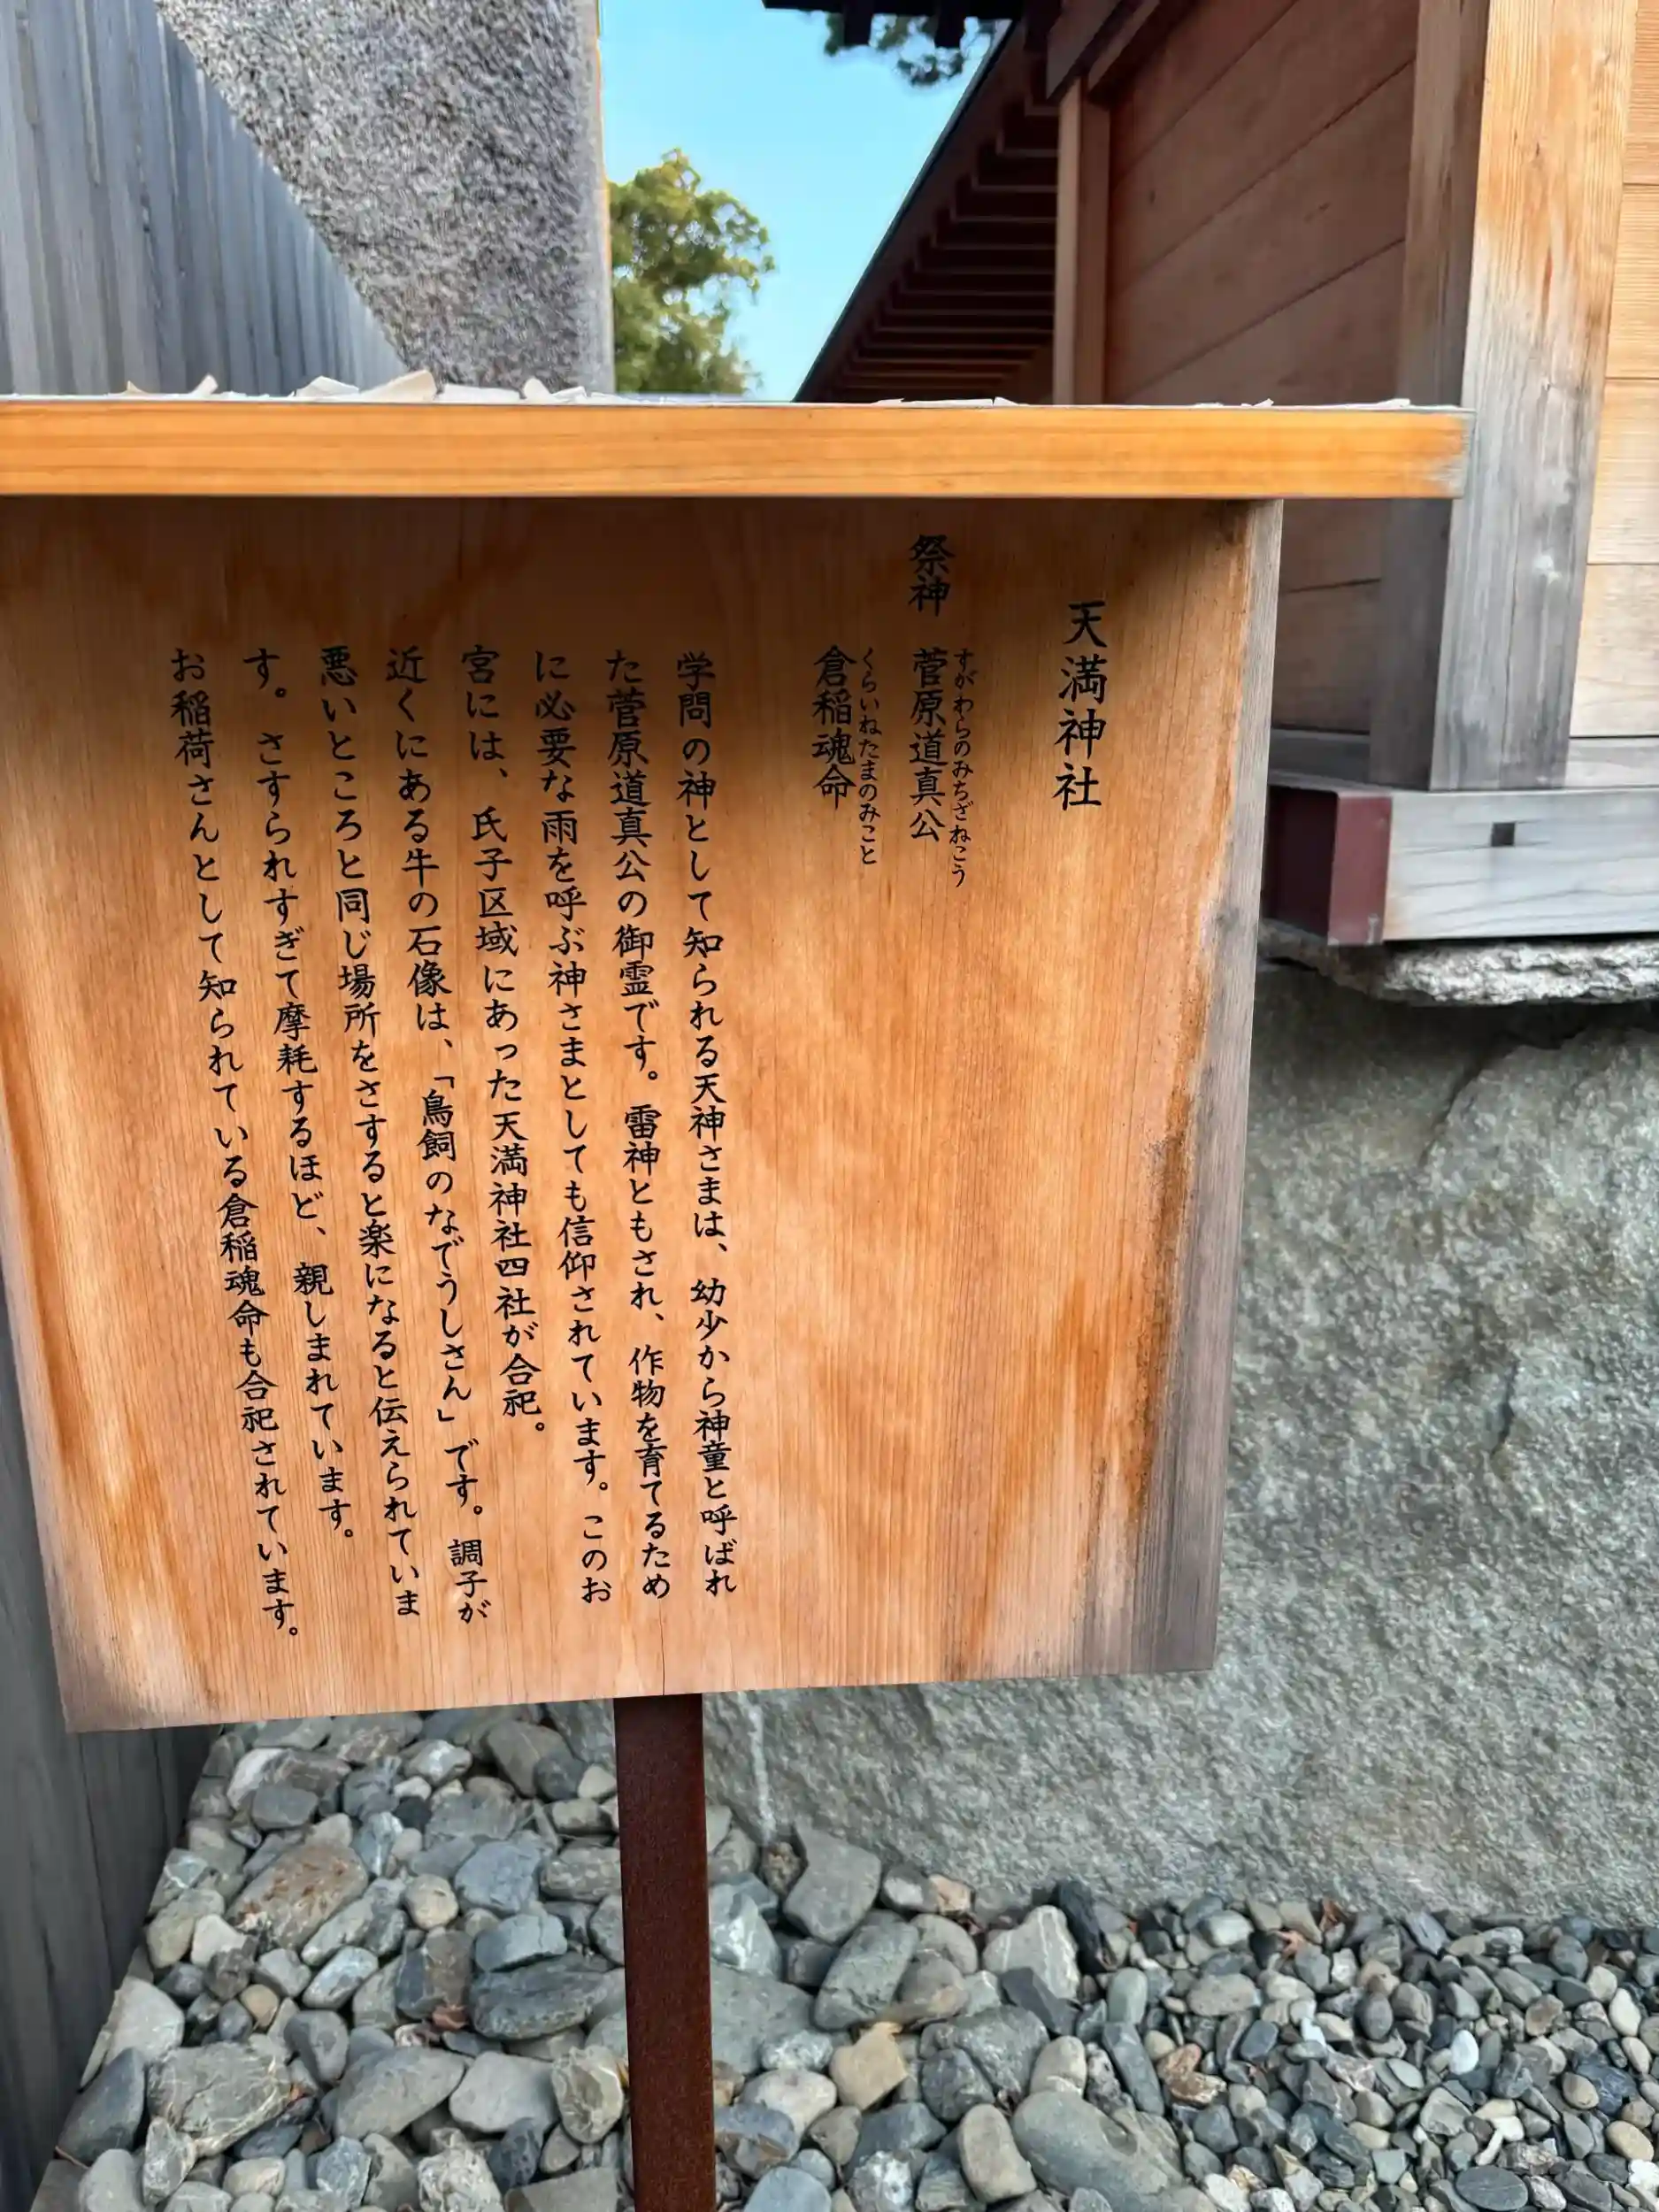 天満神社
祭神 菅原道真公
すがわらのみちざねこう
倉稲魂命
くらいねたまのみこと
学問の神として知られる天神さまは、幼少から神童と呼ばれ
た菅原道真公の御霊です。雷神ともされ、作物を育てるため
に必要な雨を呼ぶ神さまとしても信仰されています。このお
宮には、氏子区域にあった天満神社四社が合祀。
近くにある牛の石像は、「鳥飼のなでうしさん」です。調子が
悪いところと同じ場所をさすると楽になると伝えられていま
す。さすられすぎて摩耗するほど、親しまれています。
お稲荷さんとして知られている倉稲魂命も合祀されています。